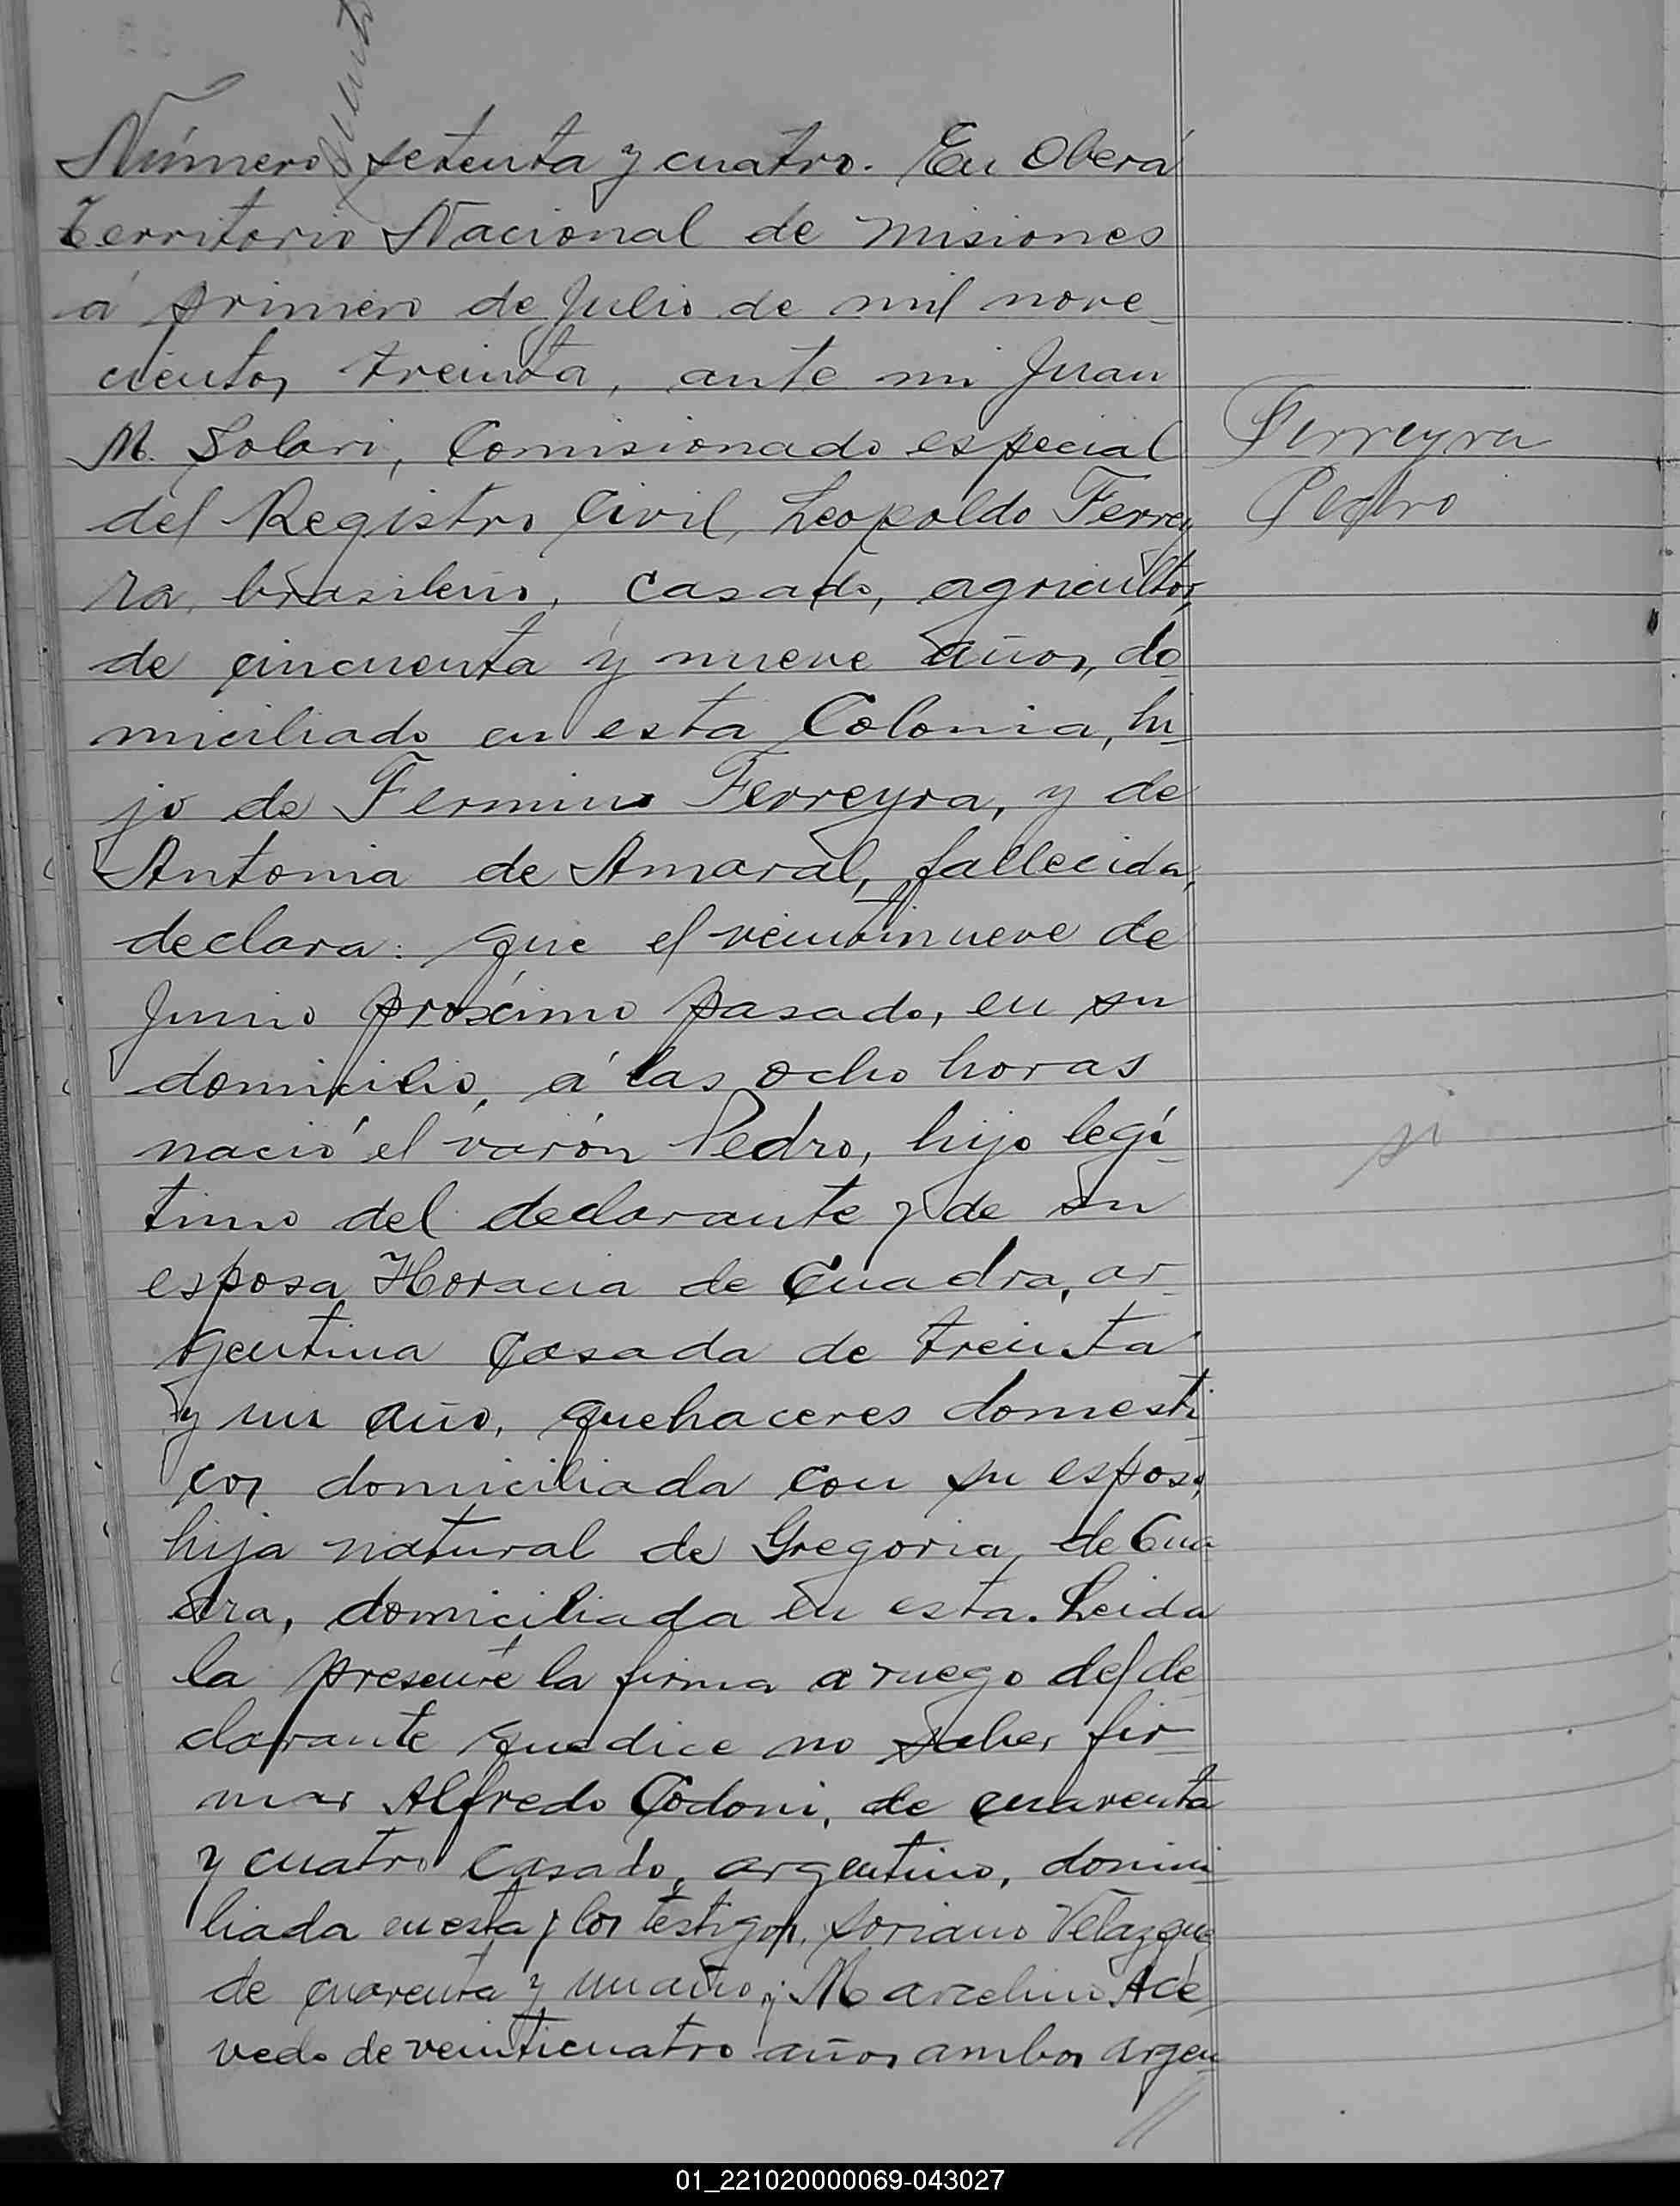 Número setenta y cuatro. En Oberá
Territorio Nacional de Misiones
á primero de Julio de mil nove-
cientos treinta, ante mi Juan
M. Solari, Comisionado especial
del Registro Civil, Leopoldo Ferrey
ra, brasileño, casado, agricultor,
de cincuenta y nueve años, do-
miciliado en esta Colonia, hi-
jo de Fermino Ferreyra, y de
Antonia de Amaral, fallecida,
declara: que el veintinueve de
Junio proximo pasado, en su
domicilio, á las ocho horas
nació el varón Pedro, hijo legí-
timo del declarante y de su
esposa Horacia de Cuadra, ar-
gentina casada de treinta
y un año, quehaceres domesti-
cos domiciliada con su esposo,
hija natural de Gregoria de Cua-
dra, domiciliada en esta. Leida
la presente la firma a ruego del de-
clarante que dice no saber fir-
mar Alfredo Codoni, de cuarenta
y cuatro casado, argentino, domici-
liada en esta y los testigos, Soriano Velazque
de cuarenta y un año y Marcelino Ace-
vedo de veinticuatro años ambos argen-
//
Ferreyra
Pedro
si
01_221020000069-043027